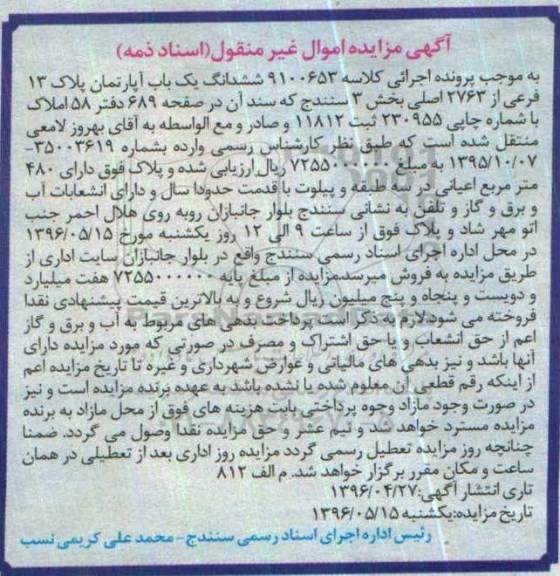 آگهی مزایده اموال غیر منقول(اسناد ذمه)
به موجب پرونده اجرائی کلاسه ۹۱۰۰۶۵۳ ششدانگ یک باب آپارتمان پلاک ۱۳
فرعی از ۲۷۶۳ اصلی بخش ۳ سنندج که سند آن در صفحه ۶۸۹ دفتر ۵۸ املاک
با شماره چاپی ۲۳۰۹۵۵ ثبت ۱۱۸۱۲ و صادر و مع الواسطه به آقای بهروز لامعی
منتقل شده است که طبق نظر کارشناس رسمی وارده بشماره ۳۵۰۰۳۶۱۹-
۱۳۹۵/۱۰/۰۷ به مبلغ ۷۲۵۵۰۰۰۰۰۰ ریال ارزیابی شده و پلاک فوق دارای ۴۸۰
متر مربع اعیانی در سه طبقه و پیلوت با قدمت حدودا سال و دارای انشعابات آب
و برق و گاز و تلفن به نشانی سنندج بلوار جانبازان روبه روی هلال احمر جنب
اتو مهر شاد و پلاک فوق از ساعت ۹ الی ۱۲ روز یکشنبه مورخ ۱۳۹۶/۰۵/۱۵
در محل اداره اجرای اسناد رسمی سنندج واقع در بلوار جانبازان سایت اداری از
طریق مزایده به فروش میرسد.مزایده از مبلغ پایه ۷۲۵۵۰۰۰۰۰۰ هفت میلیارد
و دویست و پنجاه و پنج میلیون ریال شروع و به بالاترین قیمت پیشنهادی نقدا
فروخته می شود.لازم به ذکر است پرداخت بدهی های مربوط به آب و برق و گاز
اعم از حق انشعاب و یا حق اشتراک و مصرف در صورتی که مورد مزایده دارای
آنها باشد و نیز بدهی های مالیاتی و عوارض شهرداری و غیره تا تاریخ مزایده اعم
از اینکه رقم قطعی آن معلوم شده یا نشده باشد به عهده برنده مزایده است و نیز
در صورت وجود مازاد وجوه پرداختی بابت هزینه های فوق از محل مازاد به برنده
مزایده مسترد خواهد شد و نیم عشر و حق مزایده نقدا وصول می گردد. ضمنا
چنانچه روز مزایده تعطیل رسمی گردد مزایده روز اداری بعد از تعطیلی در همان
ساعت و مکان مقرر برگزار خواهد شد. م الف ۸۱۲
تاری انتشار آگهی:۱۳۹۶/۰۴/۲۷
تاریخ مزایده:یکشنبه ۱۳۹۶/۰۵/۱۵
رئیس اداره اجرای اسناد رسمی سنندج- محمد علی کریمی نسب